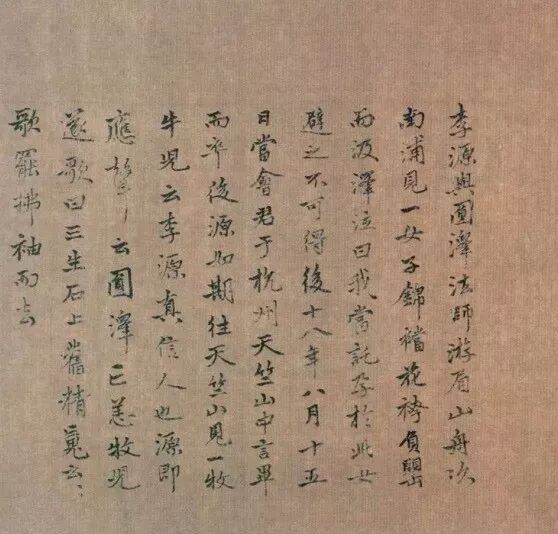 李源與圓澤法師游眉山舟次
南浦見一女子錦襠花袴負罌
而汲澤泣曰我當託孕於此女
避之不可得後十八年八月十五
日當會君于杭州天竺山中言畢
而卒後源如期往天竺山見一牧
牛児云李源真信人也源即
應聲云圓澤已恙牧児
遂歌曰三生石上舊精䰟云〻
歌罷拂袖而去